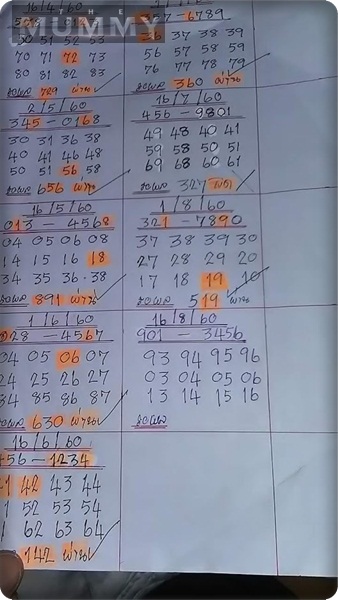 THE
MUMMY
16/4/60
50 51 52 53
70 71 72 73
80 81 82 83
ขอผล 729 ผ่าน
2/5/60
345-0168
30 31 36 38
40 41 46 48
50 51 56 58
ขอผล 656 ผ่าน
16/5/60
013-4568
04 05 06 08
14 15 16 18
34 35 36 38
ขอผล 891 ผ่าน
1/6/60
028-4567
04 05 06 07
24 25 26 27
34 85 86 87
ขอผล 630 ผ่าน
16/6/60
456-1234
41 42 43 44
52 53 54
62 63 64
142 ผ่าน
57-6789
36 37 38 39
56 57 58 59
76 77 78 79
ขอผล 360 ผ่าน
16/7/60
456-9801
49 48 40 41
59 58 50 51
69 68 60 61
ขอผล 327
1/8/60
321-7890
37 38 39 30
27 28 29 20
17 18 19 10
ขอผล 519 ผ่าน
16/8/60
901-3456
93 94 95 96
03 04 05 06
13 14 15 16
ขอผล